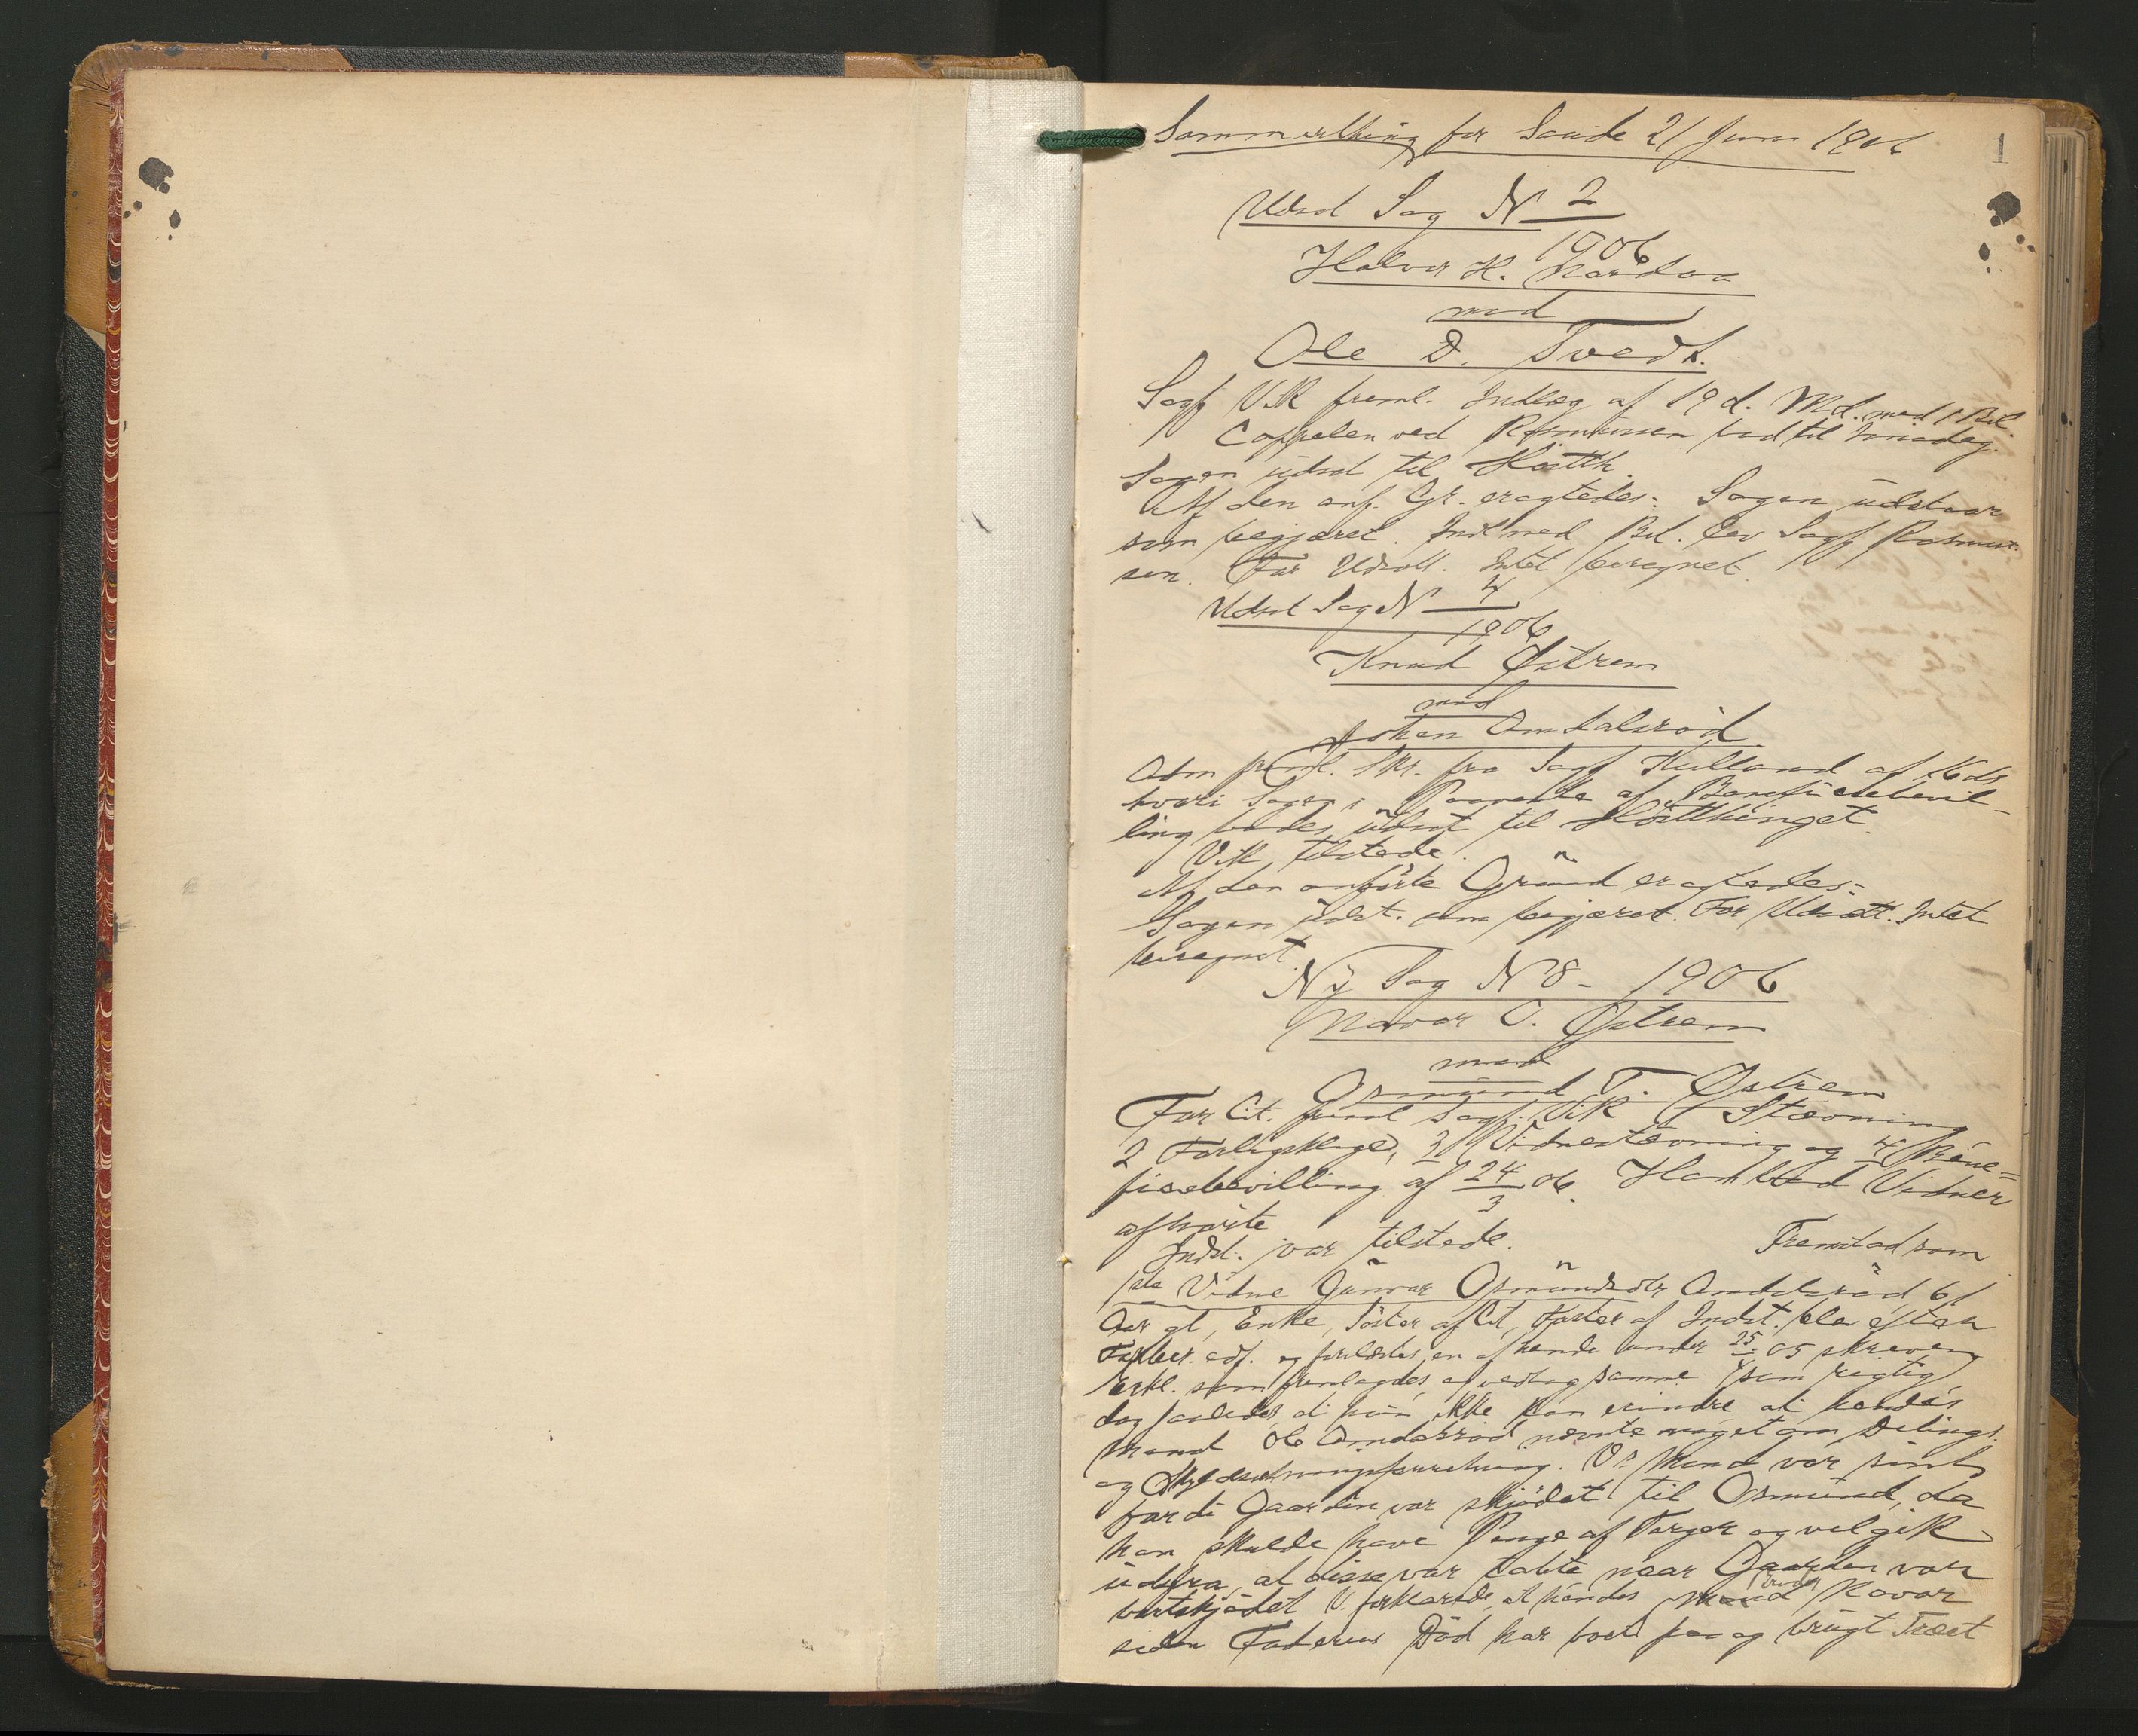 Sommerthing for Saude 21 Juni 1906
1
Udsat Sag N 2
1906
Halvor H.
mod
Ole D. Tvedt.
Sagf Vik freml. Indlæg af 19 d. Md. med 1 Bil.
Cappelen ved Rasmussen bad til Imødeg.
Sagen udsat til Høstth.
Af den anf. Gr. eragtedes: Sagen udstaar
som begjæret. Indl med Bil. lev Sagf Rasmus-
sen. For Udsætt. Intet beregnet.
Udsat Sag N 4
1906
Knud Østrem
mod
Johan Omdalsrød
Adm freml. Skr. fra Sagf Kulland af 16 ds
hvori Sagen i Paavente af Beneficiebevil-
ling bades udsat til Høstthinget.
Vik tilstede.
Af den anførte Grund eragtedes:
Sagen udst. som begjæret. For Udsætt. Intet
beregnet.
Ny Sag N 8 - 1906
Havor O. Østrem
mod
Osmund T. Østrem
For Cit. freml Sagf. Vik 1 Stævning
2 Forligsklage, 3 Vidnestævning og 4 Bene-
ficiebevilling af 24/3 06. Han bad Vidner
afhørte
Indst. var tilstede. Fremstod som
1ste Vidne Gunvor Osmundsdtr Omdalsrød 61
Aar gl, Enke, Søster af Cit, Faster af Indst. blev efter
Forber. edf. og forelæstes en af hende under 25/4 05 skreven
Erkl. som fremlagdes og vedtog samme som rigtig
dog saaledes at hun ikke kan erindre at hendes
Mand Ole Omdalsrød nævnte noget om Delings-
og Udskiftningsforretning. Vs Mand var sint
fordi Gaarden var skjødet til Osmund, da
han skulde have Penge af Torger og vel gik
ud fra, at disse var tabte naar Gaarden var
bortskjødet V. forklarede, at hendes Broder Havor
siden Faderens Død har boet paa og brugt Træet